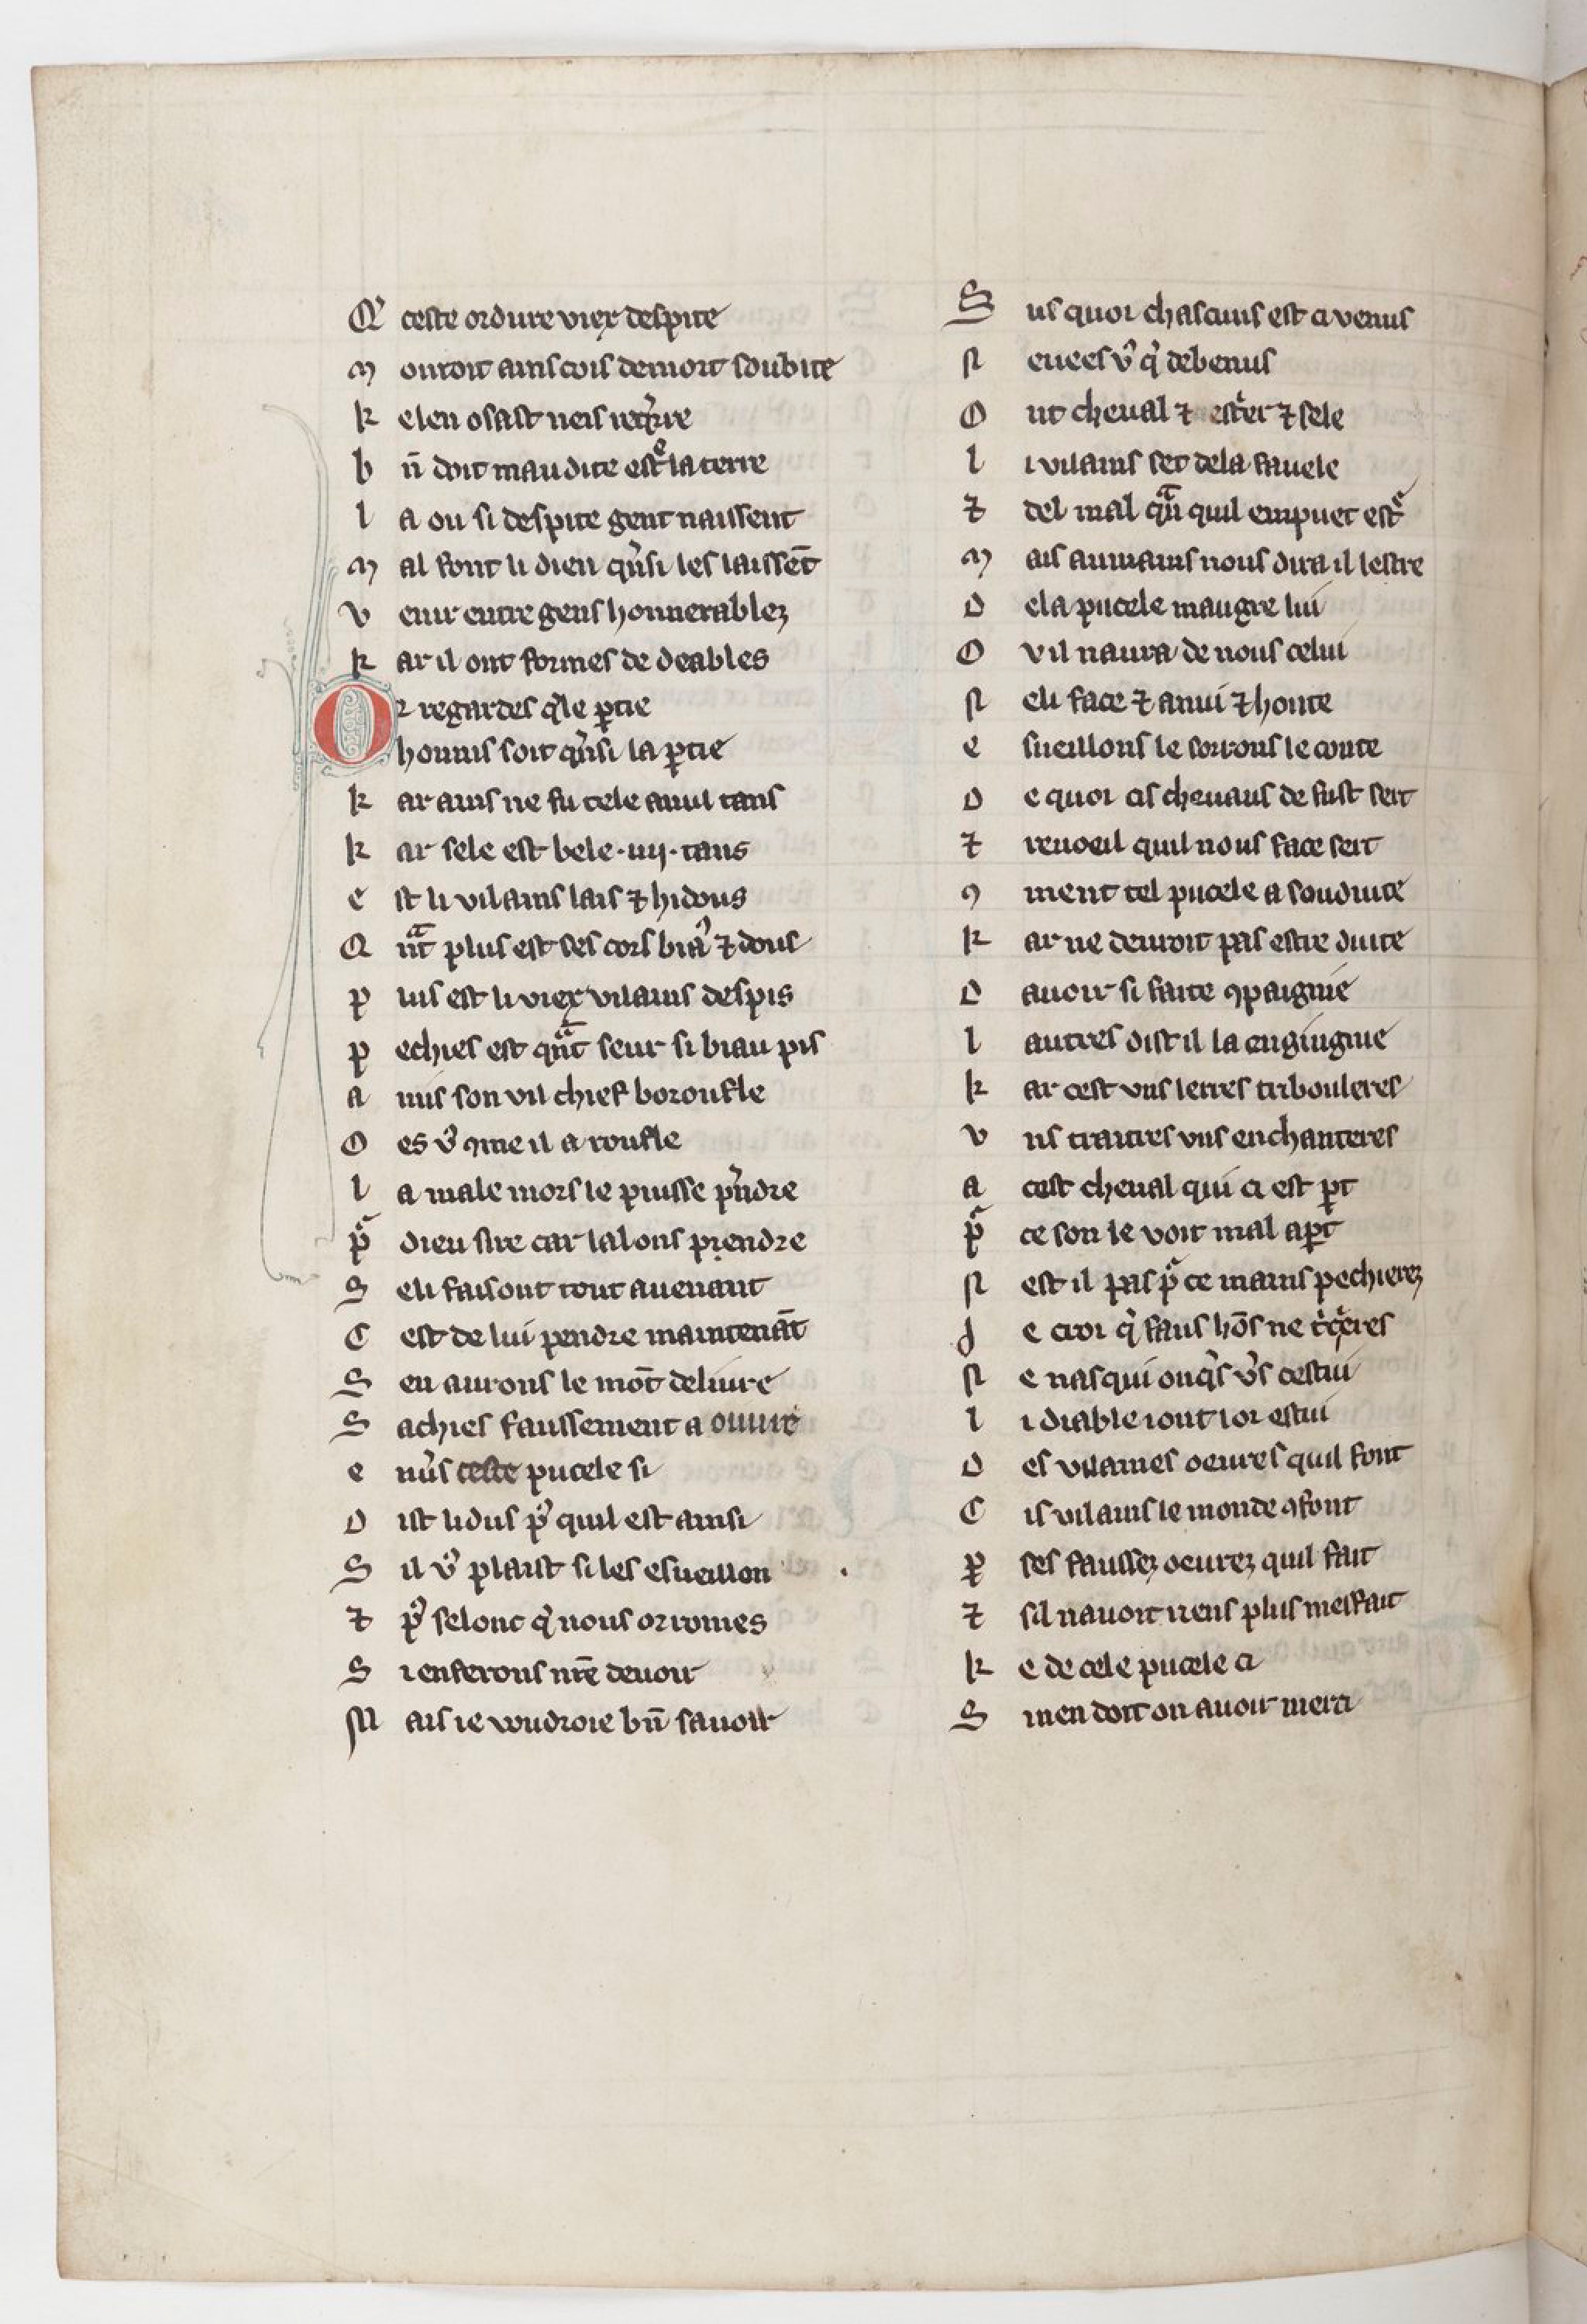 Q' ceste ordure viex despite
M ourroit ainscois de mort soubite
K e len osast neis req̾rre
B n̄ doit maudite estͤ la terre
L a ou si despite gent naissent
M al font li dieu qͥnsi les laissēt
V enir entre gens honnerablez
K ar il ont formes de deables
O r regardes q̾le ꝑtie
honnis soit qͥnsi la ꝑtie
K ar ains ne fu cele a nul tans
K ar sele est bele .iiij. tans
E st li vilains lais ⁊ hidous
Q nᷓt plus est ses cors biaꝰ ⁊ dous
P lus est li viex vilains despis
P echies est qᷓnt seur si biau pis
A mis son vil chief boroufle
O es vͦ ꝯme il a roufle
L a male mors le puisse pͥndre
Pᷓ dieu sire car lalons prendre
S eli faisont tout auenant
C est de lui pendre maintenāt
S en aurons le mōt deliure
S achies faussement a ouure
E nuͥs ceste pucele si
D ist li dus pͦ quil est ainsi
S il vͦ plaist si les esueillon
⁊ pͦ selonc q̾ nous orromes
S i enferons nr̄e deuoir
M ais ie voudroie bn̄ sauoir
S us quoi chascuns est ci venus
N e uees vͦ q̾ de benus
O nt cheual ⁊ estͥer ⁊ sele
L i vilains set de la fauele
⁊ del mal qᷓn quil em puet estͤ
M ais au mains nous dira il lestre
D e la pucele maugre lui
O v il naura de nous celui
N e li face ⁊ anui ⁊ honte
E sueillons le sorrons le conte
D e quoi cis cheuaus de fust sert
⁊ reuoeil quil nous face sert
ꝯ ment tel pucele a souduite
K ar ne deuroit pas estre duite
D auoir si faite ꝯpaignie
L autres dist il la engingnie
K ar cest vns lerres tribouleres
V ns traitres vns enchanteres
A cest cheual qui ci est ꝑt
Pᷓ ce son le voit mal aꝑt
N est il pas pᷓ ce mains pechierez
J e croi q̾ faus hōs ne tͥcͤres
N e nasqui onqͥs vͥs cestui
L i diable iont lor estui
D es vilaines oeures quil font
C is vilains le monde ꝯfont
Ꝑ ses faussez oeurez quil fait
⁊ sil nauoit riens plus meffait
K e de cele pucele ci
S in en doit on auoir merci